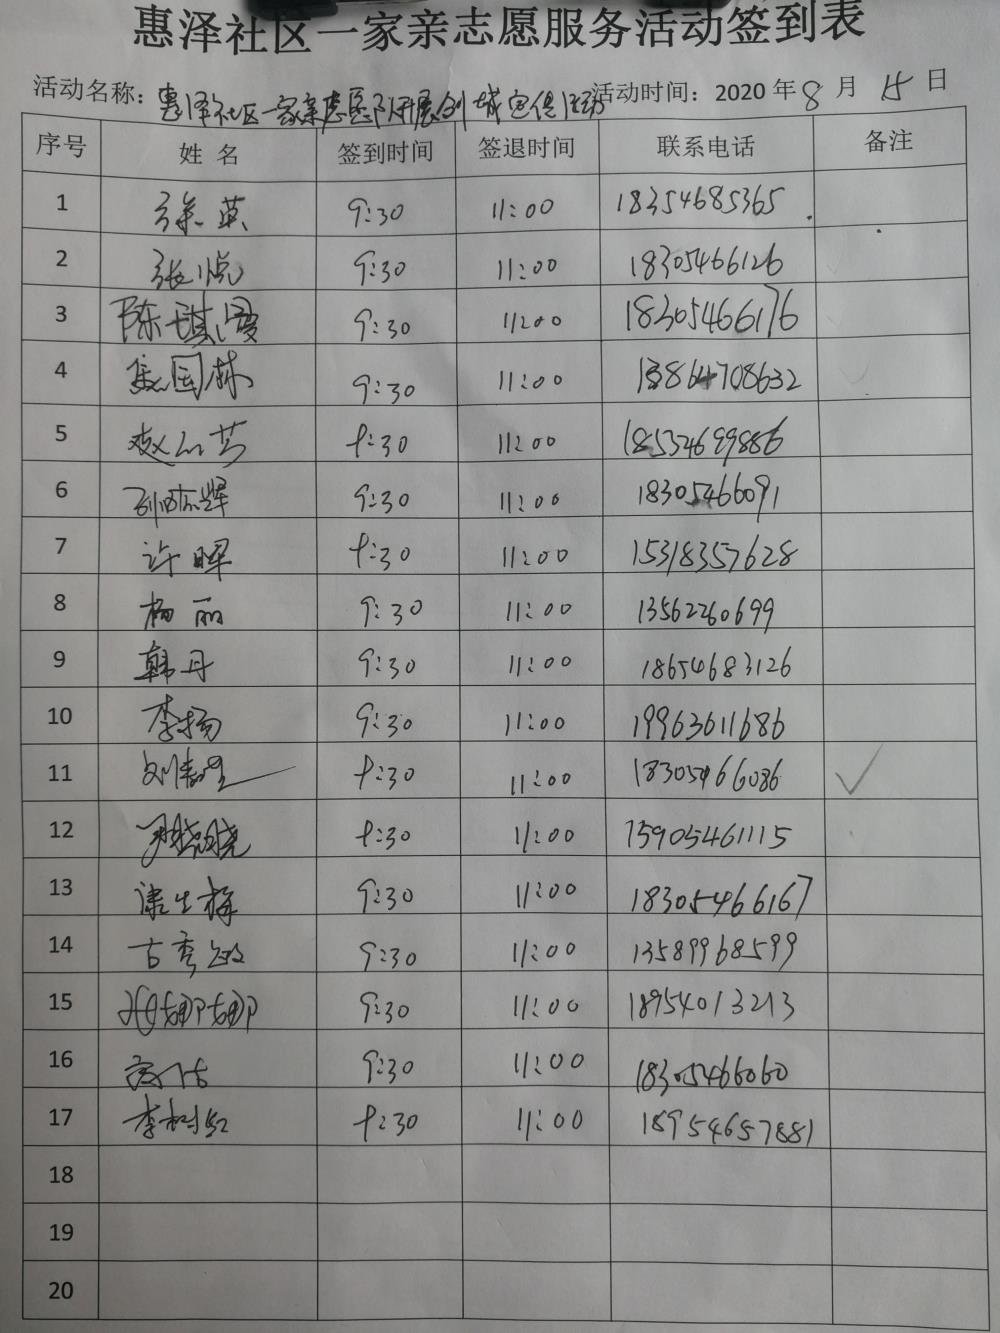 惠泽社区一家亲志愿服务活动签到表
活动名称：惠泽社区一家亲志愿队开展创城宣传活动 活动时间：2020年8月15日
序号 姓名 签到时间 签退时间 联系电话 备注
1 徐英 9:30 11:00 18354685365
2 张悦 9:30 11:00 18305466126
3 陈琪 9:30 11:00 18305466176
4 国林 9:30 11:00 13864708632
5 赵 9:30 11:00 18554699886
6 9:30 11:00 18305466091
7 许晖 9:30 11:00 15318357628
8 杨丽 9:30 11:00 13562260699
9 韩丹 9:30 11:00 18654683126
10 李扬 9:30 11:00 19963611686
11 刘 9:30 11:00 18305466086 ✓
12 9:30 11:00 15905461115
13 9:30 11:00 18305466167
14 古秀敏 9:30 11:00 13589968599
15 娜娜 9:30 11:00 18954013213
16 9:30 11:00 18305466060
17 李树红 9:30 11:00 18954657881
18
19
20